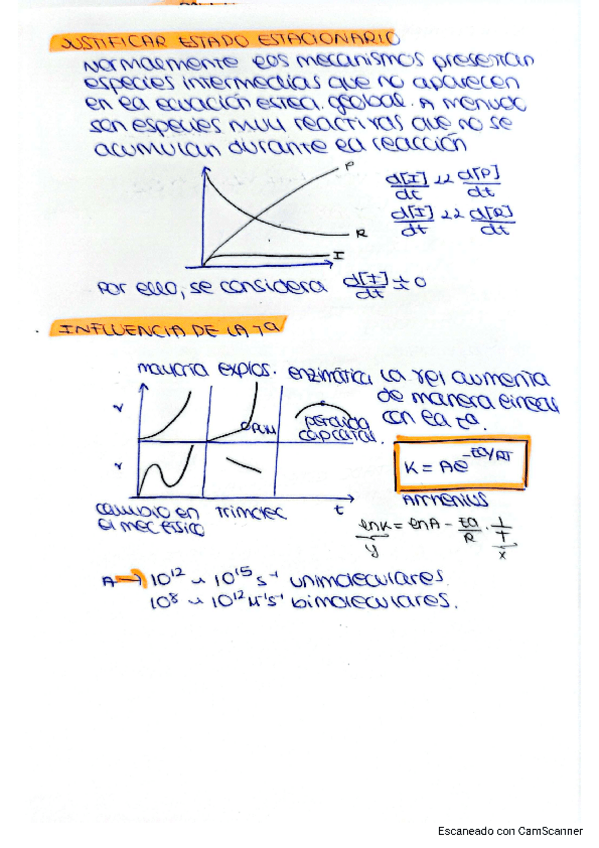 JUSTIFICAR ESTADO ESTACIONARIO
Normalmente los mecanismos presentan
especies intermedias que no aparecen
en la ecuación esteq. global. A menudo
son especies muy reactivas que no se
acumulan durante la reacción
P
R
I
d[I]/dt << d[P]/dt
d[I]/dt << d[R]/dt
Por ello, se considera d[I]/dt = 0
INFLUENCIA DE LA Tª
mayoría explos. enzimática
v
pérdida
cap catal.
v
cambio en trimolec t
el mec
La vel aumenta
de manera lineal
con la tª.
K = Ae^-Ea/RT
Arrhenius
lnK = lnA - Ea/R · 1/T
y
x
A → 10^12 ~ 10^15 s^-1 unimoleculares.
10^8 ~ 10^12 M^-1 s^-1 bimoleculares.
Escaneado con CamScanner